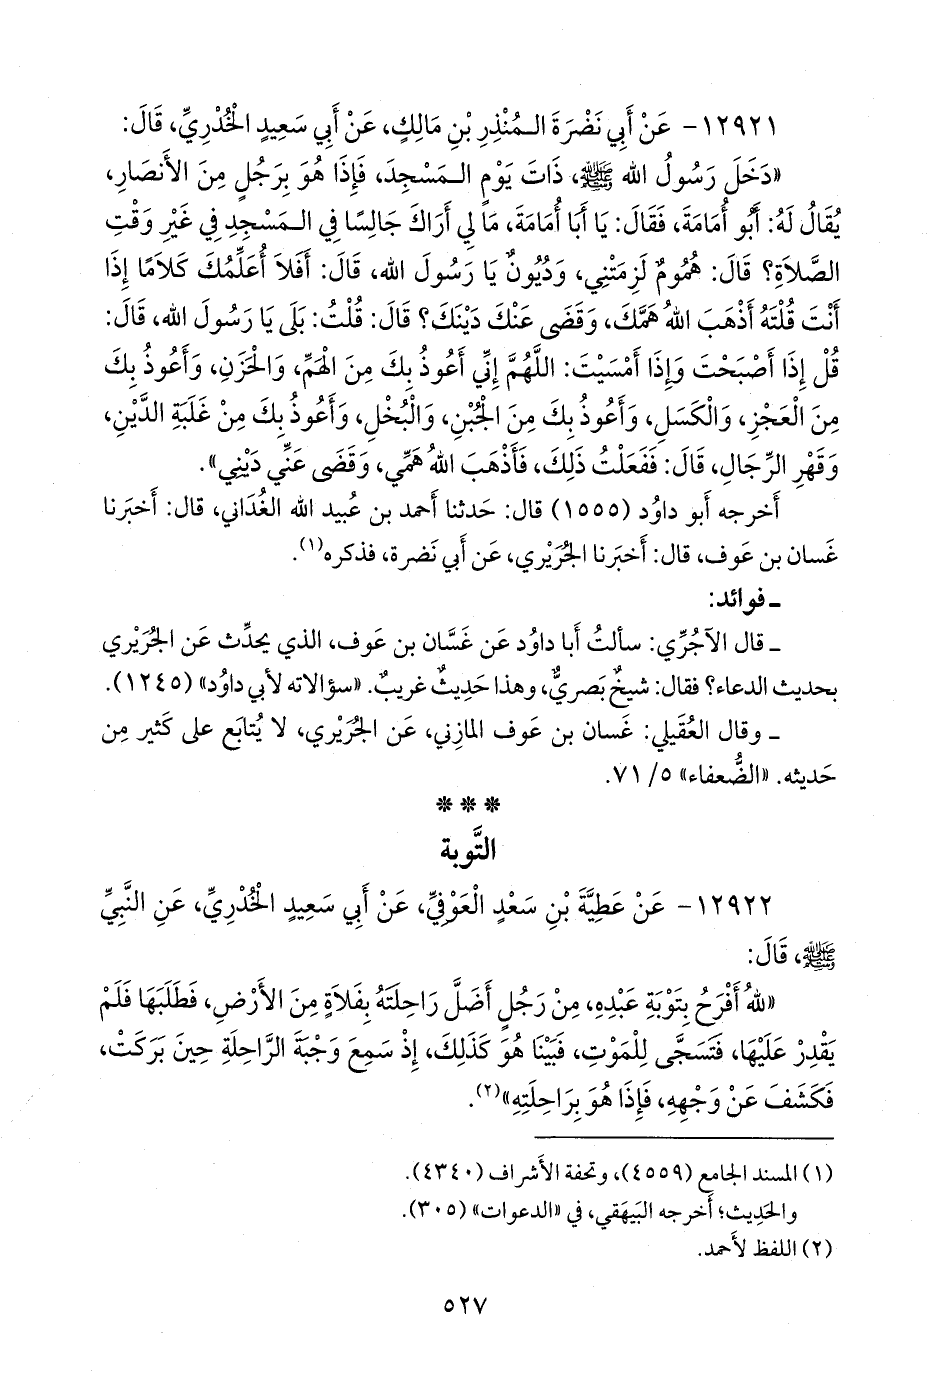 ١٢٩٢١- عَنْ أَبِي نَضْرَةَ الـمُنْذِرِ بْنِ مَالِكٍ، عَنْ أَبِي سَعِيدٍ الْخُدْرِيِّ، قَالَ:
«دَخَلَ رَسُولُ الله ﷺ، ذَاتَ يَوْمٍ الـمَسْجِدَ، فَإِذَا هُوَ بِرَجُلٍ مِنَ الأَنصَارِ،
يُقَالُ لَهُ: أَبُو أُمَامَةَ، فَقَالَ: يَا أَبَا أُمَامَةَ، مَا لِي أَرَاكَ جَالِسًا فِي الـمَسْجِدِ فِي غَيْرِ وَقْتِ
الصَّلاَةِ؟ قَالَ: هُمُومٌ لَزِمَتْنِي، وَدُيُونٌ يَا رَسُولَ الله، قَالَ: أَفَلاَ أُعَلِّمُكَ كَلاَمًا إِذَا
أَنْتَ قُلْتَهُ أَذْهَبَ اللهُ هَمَّكَ، وَقَضَى عَنْكَ دَيْنَكَ؟ قَالَ: قُلْتُ: بَلَى يَا رَسُولَ الله، قَالَ:
قُلْ إِذَا أَصْبَحْتَ وَإِذَا أَمْسَيْتَ: اللَّهُمَّ إِنِّي أَعُوذُ بِكَ مِنَ الْهَمِّ، وَالْحَزَنِ، وَأَعُوذُ بِكَ
مِنَ الْعَجْزِ، وَالْكَسَلِ، وَأَعُوذُ بِكَ مِنَ الْجُبْنِ، وَالْبُخْلِ، وَأَعُوذُ بِكَ مِنْ غَلَبَةِ الدَّيْنِ،
وَقَهْرِ الرِّجَالِ، قَالَ: فَفَعَلْتُ ذَلِكَ، فَأَذْهَبَ اللهُ هَمِّي، وَقَضَى عَنِّي دَيْنِي».
أَخرجه أَبو داوُد (١٥٥٥) قال: حَدثنا أَحمد بن عُبيد الله الغُداني، قال: أَخبَرنا
غَسان بن عَوف، قال: أَخبَرنا الجُرَيْري، عَن أَبي نَضرة، فذكره(١).
ـ فوائد:
ـ قال الآجُرِّي: سأَلتُ أَبا داوُد عَن غَسَّان بن عَوف، الذي يحدِّث عَن الجُرَيْري
بحديث الدعاء؟ فقال: شيخٌ بَصريٌّ، وهذا حَدِيثٌ غريبٌ. «سؤالاته لأبي داوُد» (١٢٤٥).
ـ وقال العُقَيلي: غَسان بن عَوف المازِني، عَن الجُرَيْري، لا يُتابَع على كَثير مِن
حَديثه. «الضُّعفاء» ٥/ ٧١.
***
التَّوبة
١٢٩٢٢- عَنْ عَطِيَّةَ بْنِ سَعْدٍ الْعَوْفِيِّ، عَنْ أَبِي سَعِيدٍ الْخُدْرِيِّ، عَنِ النَّبِيِّ
ﷺ، قَالَ:
«للهُ أَفْرَحُ بِتَوْبَةِ عَبْدِهِ، مِنْ رَجُلٍ أَضَلَّ رَاحِلَتَهُ بِفَلاَةٍ مِنَ الأَرْضِ، فَطَلَبَهَا فَلَمْ
يَقْدِرْ عَلَيْهَا، فَتَسَجَّى لِلْمَوْتِ، فَبَيْنَا هُوَ كَذَلِكَ، إِذْ سَمِعَ وَجْبَةَ الرَّاحِلَةِ حِينَ بَرَكَتْ،
فَكَشَفَ عَنْ وَجْهِهِ، فَإِذَا هُوَ بِرَاحِلَتِهِ»(٢).
(١) المسند الجامع (٤٥٥٩)، وتحفة الأَشراف (٤٣٤٠).
والحَدِيث؛ أَخرجه البَيهَقي، في «الدعوات» (٣٠٥).
(٢) اللفظ لأَحمد.
٥٢٧